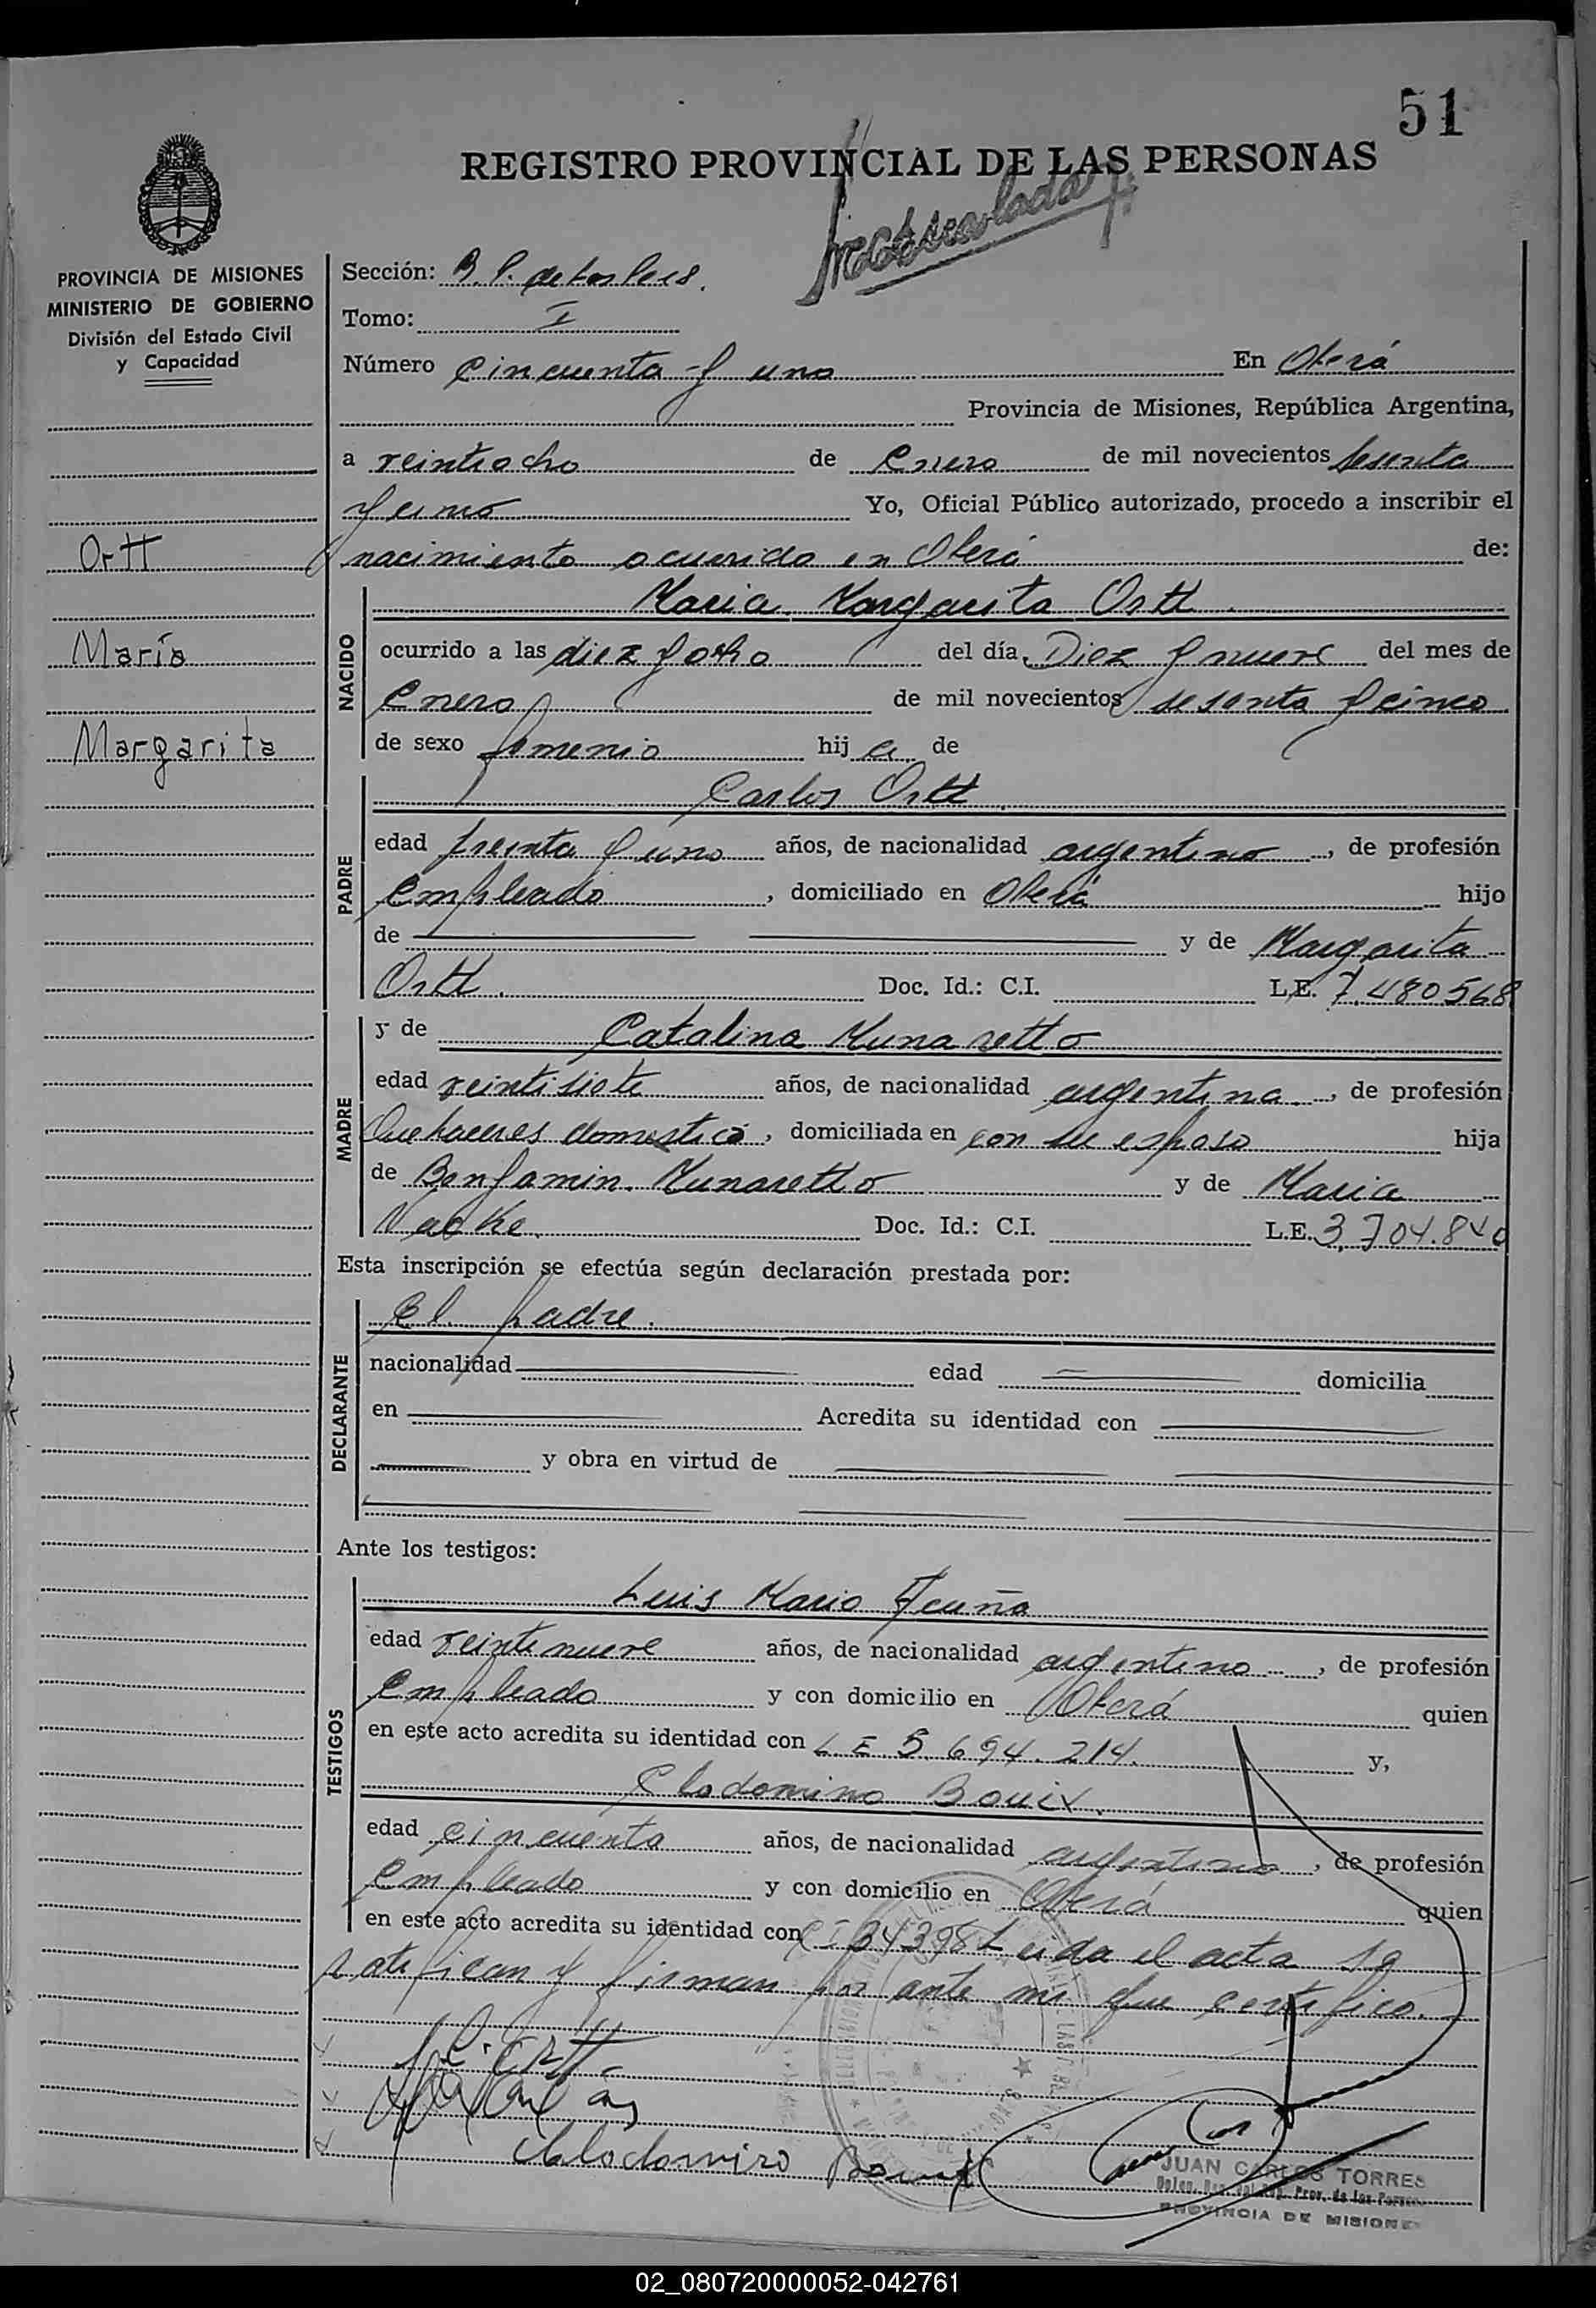 51
REGISTRO PROVINCIAL DE LAS PERSONAS
PROVINCIA DE MISIONES
MINISTERIO DE GOBIERNO
División del Estado Civil
y Capacidad
Sección: R. P. de las Pers.
Tomo: I
Número cincuenta y uno En Oberá
Provincia de Misiones, República Argentina,
a veintiocho de Enero de mil novecientos sesenta
y Yo, Oficial Público autorizado, procedo a inscribir el
Ortt
nacimiento ocurrido en Oberá de:
NACIDO
Maria Margarita Ortt.
María
ocurrido a las diez y ocho del día Diez y nueve del mes de
Enero de mil novecientos sesenta y cinco
Margarita
de sexo femenio hij a de
PADRE
Carlos Ortt.
edad treinta y uno años, de nacionalidad argentino, de profesión
Empleado, domiciliado en Oberá hijo
de y de Margarita
Ortt. Doc. Id.: C.I. L.E. 7.480568
MADRE
y de Catalina Munaretto
edad veintisiete años, de nacionalidad argentina., de profesión
Quehaceres domestico, domiciliada en con su esposo hija
de Benjamin Munaretto y de Maria
Doc. Id.: C.I. L.E. 3.704.840
Esta inscripción se efectúa según declaración prestada por:
DECLARANTE
El padre.
nacionalidad edad domicilia
en Acredita su identidad con
y obra en virtud de
Ante los testigos:
TESTIGOS
Luis Mario Acuña
edad veintinueve años, de nacionalidad argentino, de profesión
Empleado y con domicilio en Oberá quien
en este acto acredita su identidad con L E 5.694.214. y,
Clodomiro Bouix.
edad cincuenta años, de nacionalidad argentino, de profesión
Empleado y con domicilio en Oberá quien
en este acto acredita su identidad con CI 34398 Leida el acta la
ratifican y firman por ante mi que certifico.
C. Ortt
Clodomiro
JUAN CARLOS TORRES
Prov. de las
PROVINCIA DE MISIONES
02_080720000052-042761